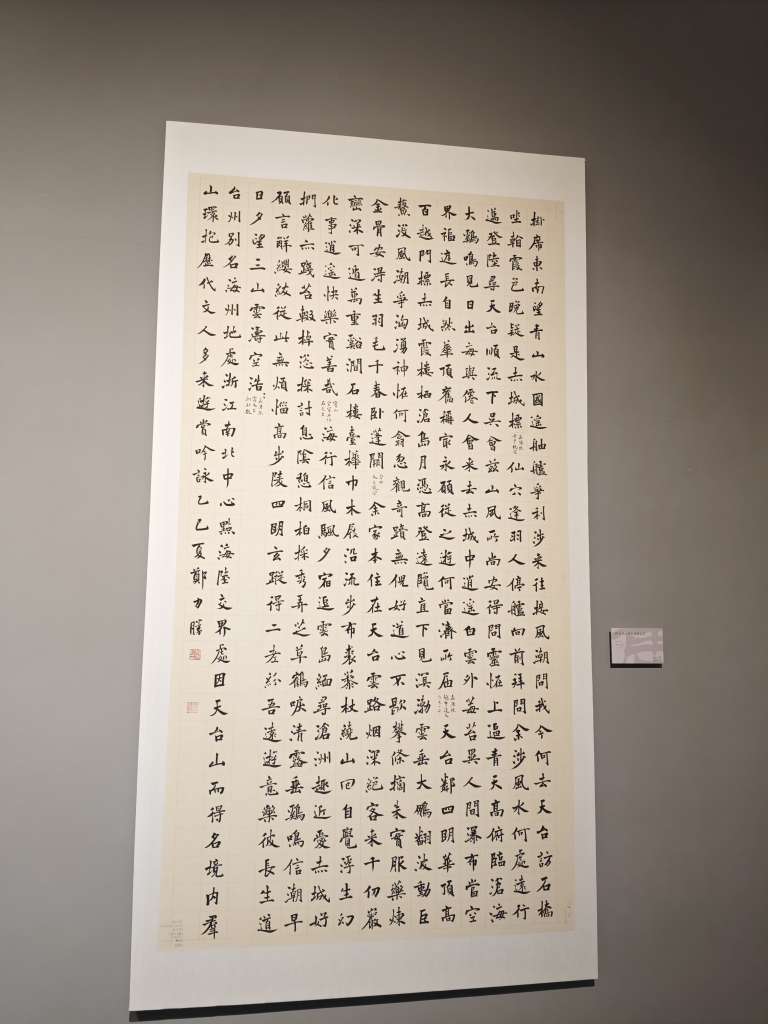 掛席東南望青山水國遙舳艫爭利涉來往接風潮問我今何去天台訪石橋
坐看霞色晚疑是赤城標仙穴逢羽人停艫向前拜問余涉風水何處遠行
邁登陸尋天台順流下吳會茲山夙所尚安得問靈怪上逼青天高俯臨滄海
大鷄鳴見日出每與僊人會來去赤城中逍遙白雲外莓苔異人間瀑布當空
界福庭長自然華頂舊稱最永願從之遊何當濟所屆天台鄰四明華頂高
百越門標赤城霞樓栖滄島月憑高登遠覽直下見溟渤雲垂大鵬翻波動巨
鰲沒風潮爭洶湧神怪何翕忽觀奇蹟無倪好道心不歇攀條摘朱實服藥煉
金骨安得生羽毛千春臥蓬闕余家本住在天台雲路烟深絕客來千仞巖
巒深可遁萬重谿澗石樓臺樺巾木屐沿流步布裘藜杖繞山回自覺浮生幻
化事逍遙快樂實善哉海行信風颿夕宿逗雲島緬尋滄洲趣近愛赤城好
捫蘿亦踐苔輟棹恣探討息陰憩桐柏採秀弄芝草鶴唳清露垂鷄鳴信潮早
願言解纓紱從此無煩惱高步陵四明玄蹤得二老紛吾遠遊意樂彼長生道
日夕望三山雲濤空浩
台州別名海州地處浙江南北中心點海陸交界處因天台山而得名境内羣
山環抱歷代文人多來遊賞吟詠乙巳夏鄭力勝